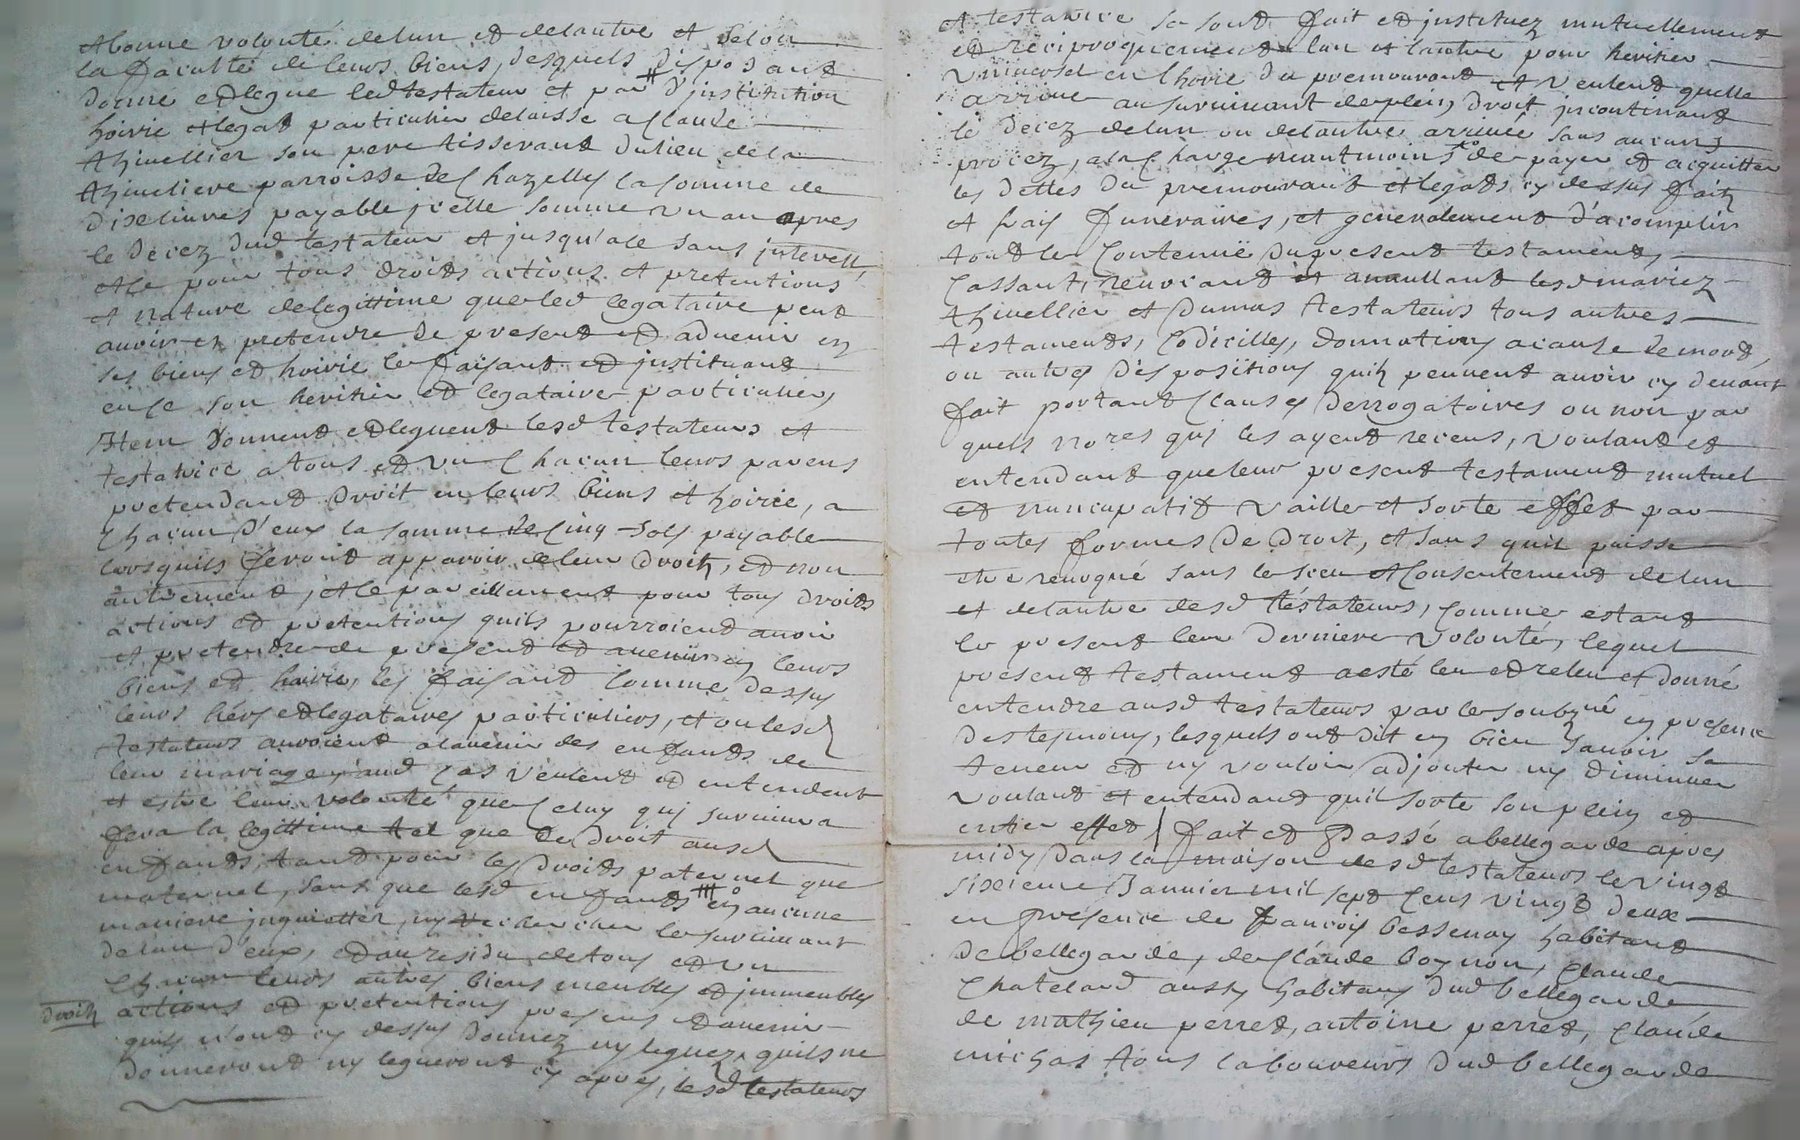 et bonne volonté de lun et de lautre et selon
la faculté de leurs biens, desquels disposant
donne et legue led testateur et par # d'justitution
hoirie et legat particulier delaisse a Claude
thivellier son pere tisserant du lieu de la
thiveliere parroisse de Chazelles la somme de
dix livres payable jcelle somme un an apres
le decez dud testateur et jusqu'a ce sans jnterest
et ce pour tous droits actions et pretentions
et nature de legittime que led legataire peut
avoir et pretendre de present et advenir en
ses biens et hoirie le faisant et jnstituant
en ce son heritier et legataire particulier
Item donnent et leguent lesd testateurs et
testatrice a tous et un chacun leurs parens
pretendant droit en leurs biens et hoirie, a
chacun d'eux la somme de cinq sols payable
lorsquils feront apparoir de leur droits, et non
autrement, et ce pareillement pour tous droits
actions et pretentions quils pourroient avoir
et pretendre de present et avenir en leurs
biens et hoirie, les faisant comme dessus
leurs hérs et legataires particuliers, et ou lesd
testateurs auroient alavenir des enfants de
leur mariage, aud cas veulent et entendent
et estre leur volonté que celuy qui survivra
fera la legittime tel que de droit ausd
enfants, tant pour les droits paternel que
maternel, sans que lesd enfants #° en aucune
maniere jnquietter, ny rechercher le survivant
de lun d'eux, et au residu de tous et un
chacun leurs autres biens meubles et jmmeubles
droits actions et pretentions presens et avenir
quils n'ont cy dessus donnez ny leguez, quils ne
donneront ny legueront cy apres, lesd testateurs
et testatrice se sont fait et jnstituez mutuellement
et reciproquement lun et lautre pour heritier
universel en lhoirie du premourant et veulent quelle
arrive au survivant de plein droit jncontinant
le decez de lun ou de lautre arrivé sans aucun
procez, a la charge neantmoins de payer et acquitter
les dettes du premourant et legats cy dessus faits
et frais funeraires, et generalement d'acomplir
tout le contenue du present testament,
Cassant, revocant et annullant lesd mariez
thivellier et dumas testateurs tous autres
testaments, Codicilles, donnations a cause de mort,
ou autres dispositions quils peuvent avoir cy devant
fait portant clauses derrogatoires ou non par
quels nores qui les ayent receus, voulant et
entendant que leur present testament mutuel
et nuncupatif vaille et sorte effet par
toutes formes de droit, et sans quil puisse
etre revoqué sans le sceu et consentement de lun
et de lautre desd testateurs, comme estant
le present leur derniere volonté, lequel
present testament a esté leu et releu et donné
entendre ausd testateurs par le soubzné en presence
des tesmoins, lesquels ont dit en bien sauoir sa
teneur et ny vouloir adjouter ny diminuer
voulant et entendant quil sorte son plein et
entier effet / fait et Passé a bellegarde apres
midy dans la maison desd testateurs le vingt
sixieme Janvier mil sept cens vingt deux
en presence de francois bessenay habitant
de bellegarde, de Claude boynon, Claude
Chatelard aussy habitans dud bellegarde
de mathieu perret, antoine perret, Claude
michas tous laboureurs dud bellegarde